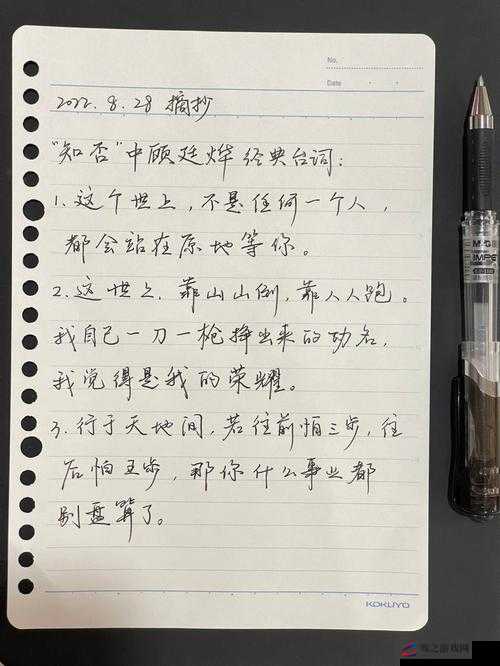 No.
Date
2022.8.28 摘抄
"知否"中顾廷烨经典台词：
1.这个世上，不是任何一个人，
都会站在原地等你。
2.这世上，靠山山倒，靠人人跑。
我自己一刀一枪挣出来的功名，
我觉得是我的荣耀。
3.行于天地间，若往前怕三步，往
后怕五步，那你什么事业都
别盘算了。
KOKUYO
M&G